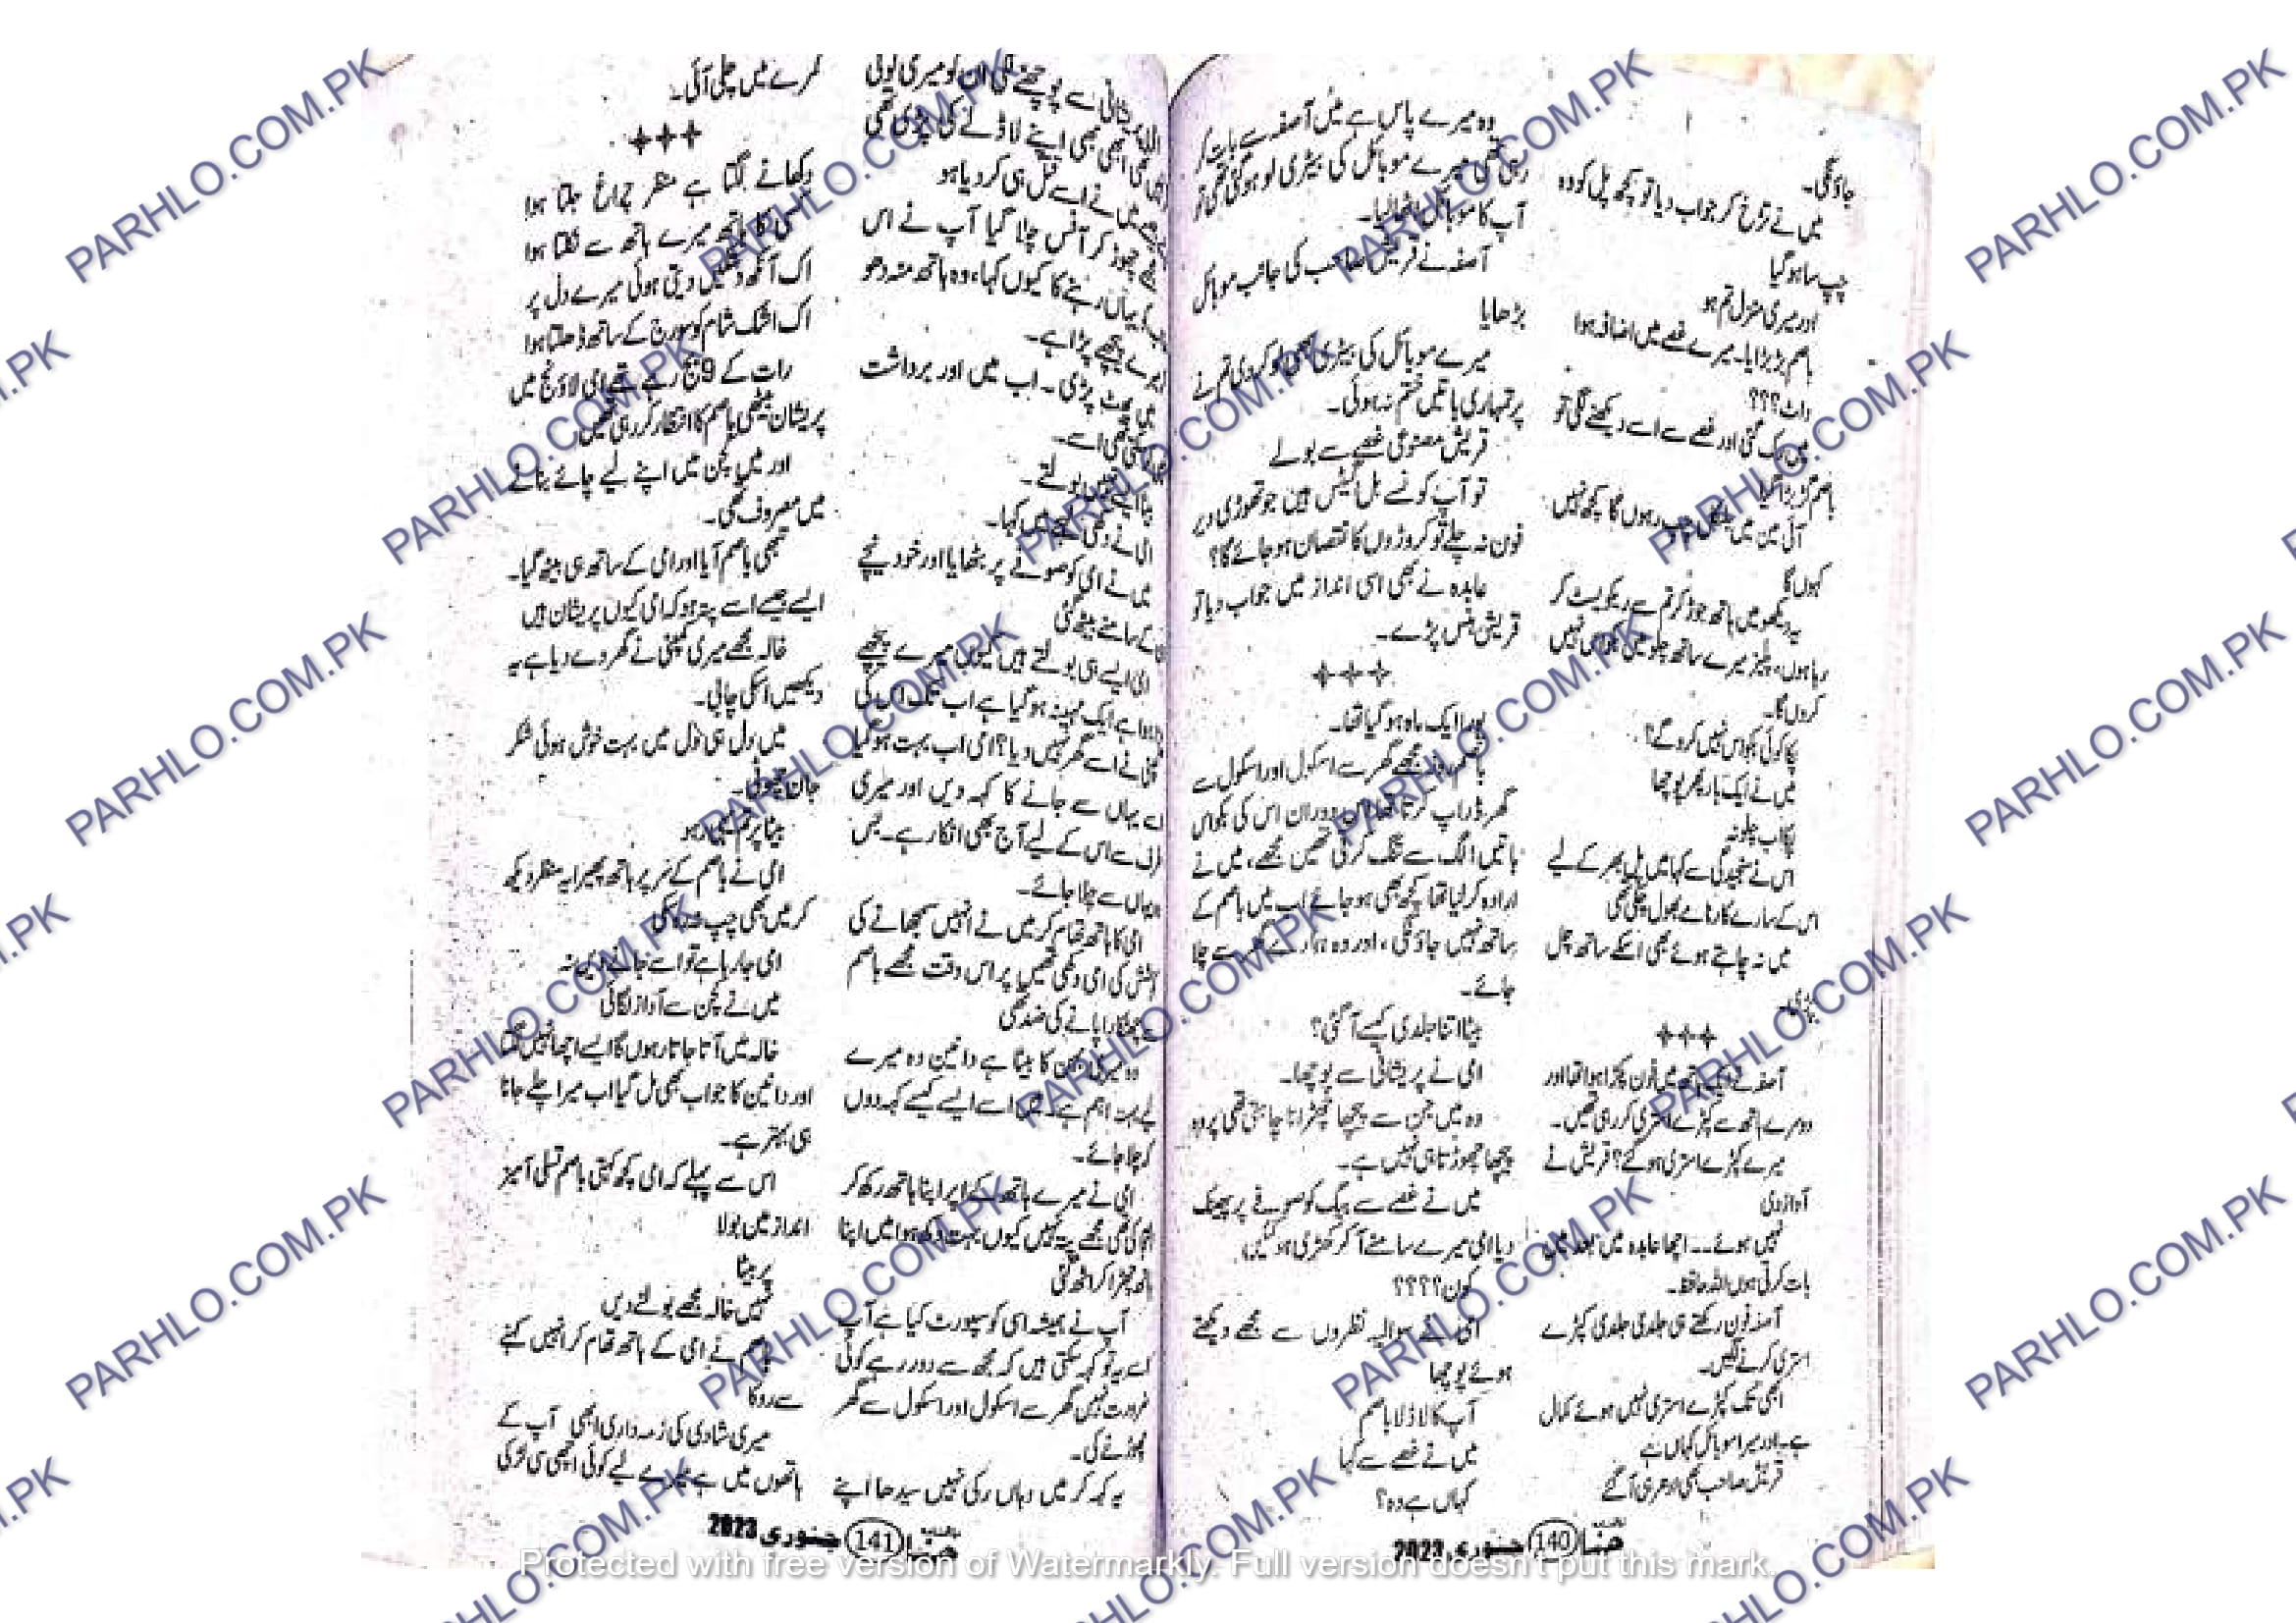 جاؤ گی۔
میں نے تڑخ کر جواب دیا تو کچھ پل کو وہ
چپ سا ہوگیا
اور میری منزل تم ہو
باصم بڑبڑایا۔ میرے غصے میں اضافہ ہوا
واٹ؟؟؟
میں رک گئی اور غصے سے اسے دیکھنے لگی تو
باصم گڑبڑا گیا
آئی مین میں بالکل چپ رہوں گا کچھ نہیں
کہوں گا
یہ دیکھو میں ہاتھ جوڑ کر تم سے ریکویسٹ کر
رہا ہوں، پلیز میرے ساتھ چلو میں بکواس نہیں
کروں گا۔
پکا کوئی بکواس نہیں کرو گے؟
میں نے ایک بار پھر پوچھا
پکا اب چلو نہ
اس نے سنجیدگی سے کہا میں پل بھر کے لیے
اس کے سارے کارنامے بھول چکی تھی
میں نہ چاہتے ہوئے بھی اسکے ساتھ چل
پڑی۔
آصفہ نے ایک ہاتھ میں فون پکڑا ہوا تھا اور
دوسرے ہاتھ سے کپڑے استری کر رہی تھیں۔
میرے کپڑے استری ہو گے؟ قریشی نے
آواز دی
نہیں ہوئے۔۔۔ اچھا عابدہ میں بعد میں
بات کرتی ہوں اللہ حافظ۔
آصفہ فون رکھتے ہی جلدی جلدی کپڑے
استری کرنے لگیں۔
ابھی تک کپڑے استری نہیں ہوئے کمال
ہے۔ اور میرا موبائل کہاں ہے
قریشی صاحب بھی ادھر ہی آ گئے
وہ میرے پاس ہے میں آصفہ سے بات کر
رہی تھی میرے موبائل کی بیٹری لو ہوگئی تھی تو
آپ کا موبائل اٹھا لیا۔
آصفہ نے قریشی صاحب کی جانب موبائل
بڑھایا
میرے موبائل کی بیٹری بھی لو کر دی تم نے
پر تمہاری باتیں ختم نہ ہوئی۔
قریشی مصنوعی غصے سے بولے
تو آپ کونسے بل گیٹس ہیں جو تھوڑی دیر
فون نہ چلے تو کروڑوں کا نقصان ہو جائے گا؟
عابدہ نے بھی اسی انداز میں جواب دیا تو
قریشی ہنس پڑے۔
پورا ایک ماہ ہو گیا تھا۔
باصم روز مجھے گھر سے اسکول اور اسکول سے
گھر ڈراپ کرتا تھا اس دوران اس کی بکواس
باتیں الگ سے تنگ کرتی تھیں مجھے، میں نے
ارادہ کر لیا تھا کچھ بھی ہو جائے اب میں باصم کے
ساتھ نہیں جاؤ گی، اور وہ ہمارے گھر سے چلا
جائے۔
بیٹا اتنا جلدی کیسے آ گئی؟
امی نے پریشانی سے پوچھا۔
وہ میں جن سے پیچھا چھڑانا چاہتی تھی پر وہ
پیچھا چھوڑتا ہی نہیں ہے۔
میں نے غصے سے بیگ کو صوفے پر پھینک
دیا امی میرے سامنے آ کر کھڑی ہو گئیں،
کون؟؟؟؟
امی نے سوالیہ نظروں سے مجھے دیکھتے
ہوئے پوچھا
آپ کا لاڈلا باصم
میں نے غصے سے کہا
کہاں ہے وہ؟
حنا 140 جنوری 2023
پریشانی سے پوچھنے لگی ان کو میری کوئی
ابھی بھی اپنے لاڈلے کی پڑی تھی
جیسے میں نے اسے قتل ہی کر دیا ہو
مجھے چھوڑ کر آفس چلا گیا آپ نے اس
کو یہاں رہنے کا کیوں کہا، وہ ہاتھ منہ دھو
میرے پیچھے پڑا ہے۔
میں پھٹ پڑی۔ اب میں اور برداشت
نہیں کر سکتی تھی اسے۔
بیٹا ایسے نہیں بولتے۔
امی نے دکھی لہجے میں کہا۔
میں نے امی کو صوفے پر بٹھایا اور خود نیچے
ان کے سامنے بیٹھ گئی
امی ایسے ہی بولتے ہیں کیونکہ میرے پیچھے
پڑا ہوا ہے ایک مہینہ ہو گیا ہے اب تک اس کی
کمپنی نے اسے گھر نہیں دیا؟ امی اب بہت ہو گیا
اسے یہاں سے جانے کا کہہ دیں اور میری
طرف سے اس کے لیے آج بھی انکار ہے۔ بس
وہ یہاں سے چلا جائے۔
امی کا ہاتھ تھام کر میں نے انہیں سمجھانے کی
کوشش کی امی دکھی تھیں پر اس وقت مجھے باصم
سے چھٹکارا پانے کی ضد تھی
وہ میری بہن کا بیٹا ہے دانین وہ میرے
لیے بہت اہم ہے۔ میں اسے ایسے کیسے کہہ دوں
کہ چلا جائے۔
امی نے میرے ہاتھوں کے اوپر اپنا ہاتھ رکھ کر
التجا کی تھی مجھے پتہ نہیں کیوں بہت دکھ ہوا میں اپنا
ہاتھ چھڑا کر اٹھ گئی
آپ نے ہمیشہ اسی کو سپورٹ کیا ہے آپ
اسے یہ تو کہہ سکتی ہیں کہ مجھ سے دور رہے کوئی
ضرورت نہیں گھر سے اسکول اور اسکول سے گھر
چھوڑنے کی۔
یہ کہہ کر میں وہاں رکی نہیں سیدھا اپنے
کمرے میں چلی آئی۔
دکھانے لگتا ہے منظر چراغ جلتا ہوا
کسی کا ہاتھ میرے ہاتھ سے نکلتا ہوا
اک آنکھ دستکیں دیتی ہوئی میرے دل پر
اک اشک شام کو سورج کے ساتھ ڈھلتا ہوا
رات کے 9 بج رہے تھے امی لاؤنج میں
پریشان بیٹھی باصم کا انتظار کر رہی تھیں،
اور میں کچن میں اپنے لیے چائے بنانے
میں مصروف تھی۔
تبھی باصم آیا اور امی کے ساتھ ہی بیٹھ گیا۔
ایسے جیسے اسے پتہ ہو کہ امی کیوں پریشان ہیں
خالہ مجھے میری کمپنی نے گھر دے دیا ہے یہ
دیکھیں اسکی چابی۔
میں دل ہی دل میں بہت خوش ہوئی شکر
جان چھوٹی۔
بیٹا پر تم یہیں رہو
امی نے باصم کے سر پر ہاتھ پھیرا یہ منظر دیکھ
کر میں بھی چپ نہ رہ سکی
امی جا رہا ہے تو اسے جانے دیں نہ
میں نے کچن سے آواز لگائی
خالہ میں آتا جاتا رہوں گا ایسے اچھا نہیں لگتا
اور دانین کا جواب بھی مل گیا اب میرا چلے جانا
ہی بہتر ہے۔
اس سے پہلے کہ امی کچھ کہتی باصم تسلی آمیز
انداز میں بولا
پر بیٹا
نہیں خالہ مجھے بولنے دیں
باصم نے امی کے ہاتھ تھام کر انہیں کہنے
سے روکا
میری شادی کی ذمہ داری ابھی آپ کے
ہاتھوں میں ہے میرے لیے کوئی اچھی سی لڑکی
حنا 141 جنوری 2023
PARHLO.COM.PK
Protected with free version of Watermarkly. Full version doesn't put this mark.